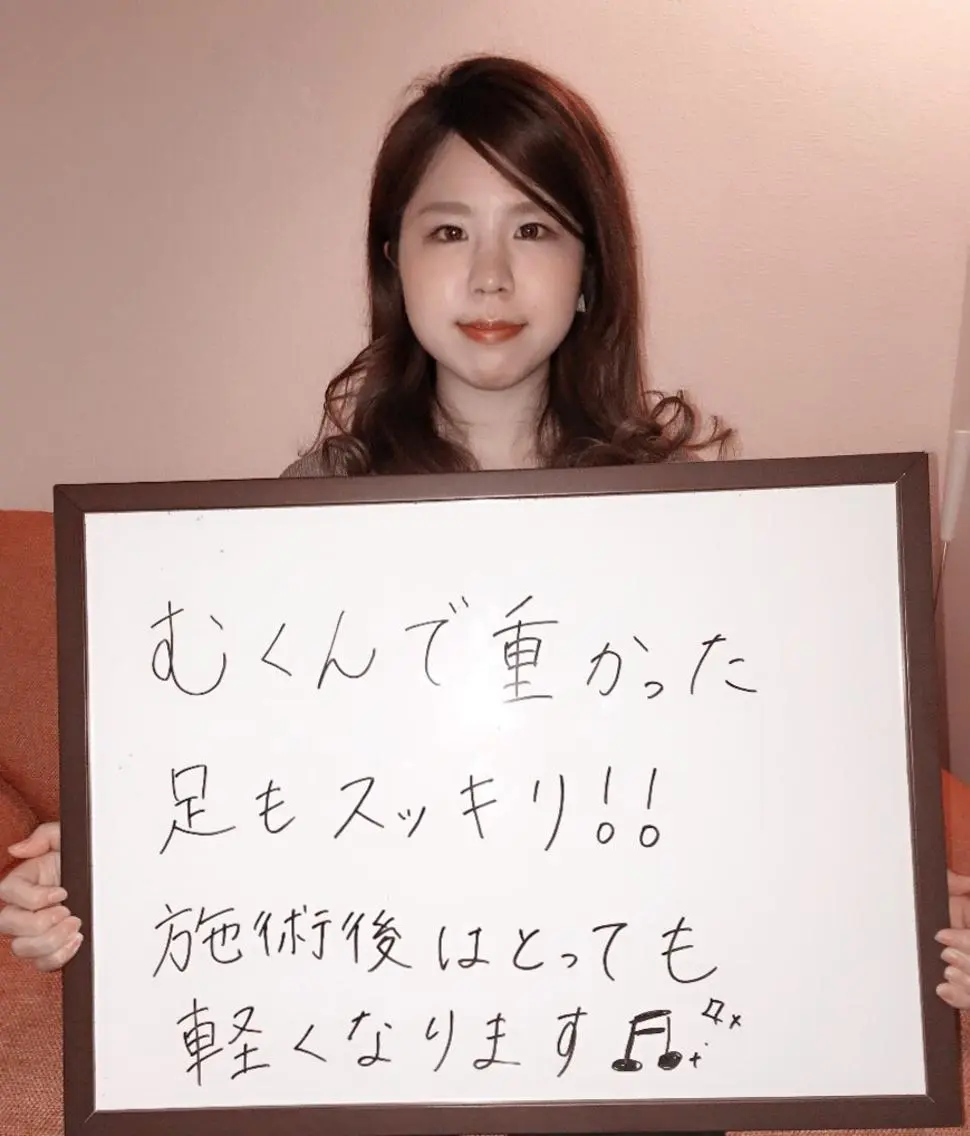 むくんで重かった
足もスッキリ!!
施術後はとっても
軽くなります♫